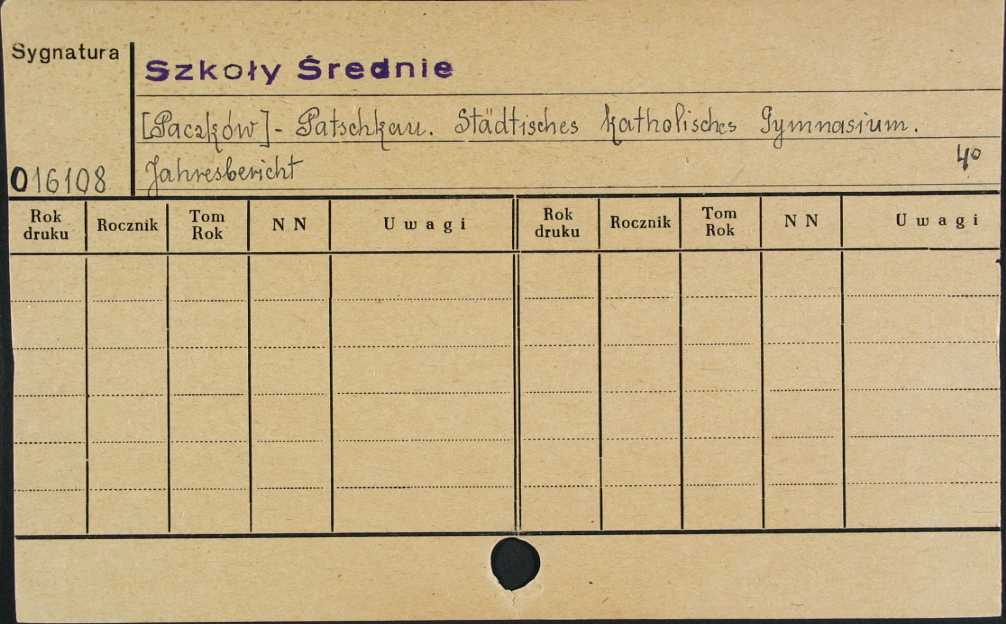 Sygnatura
Szkoły Średnie
[Paczków] - Patschkau. Städtisches katholisches Gymnasium.
Jahresbericht
4°
016108
Rok druku Rocznik Tom Rok NN Uwagi Rok druku Rocznik Tom Rok NN Uwagi